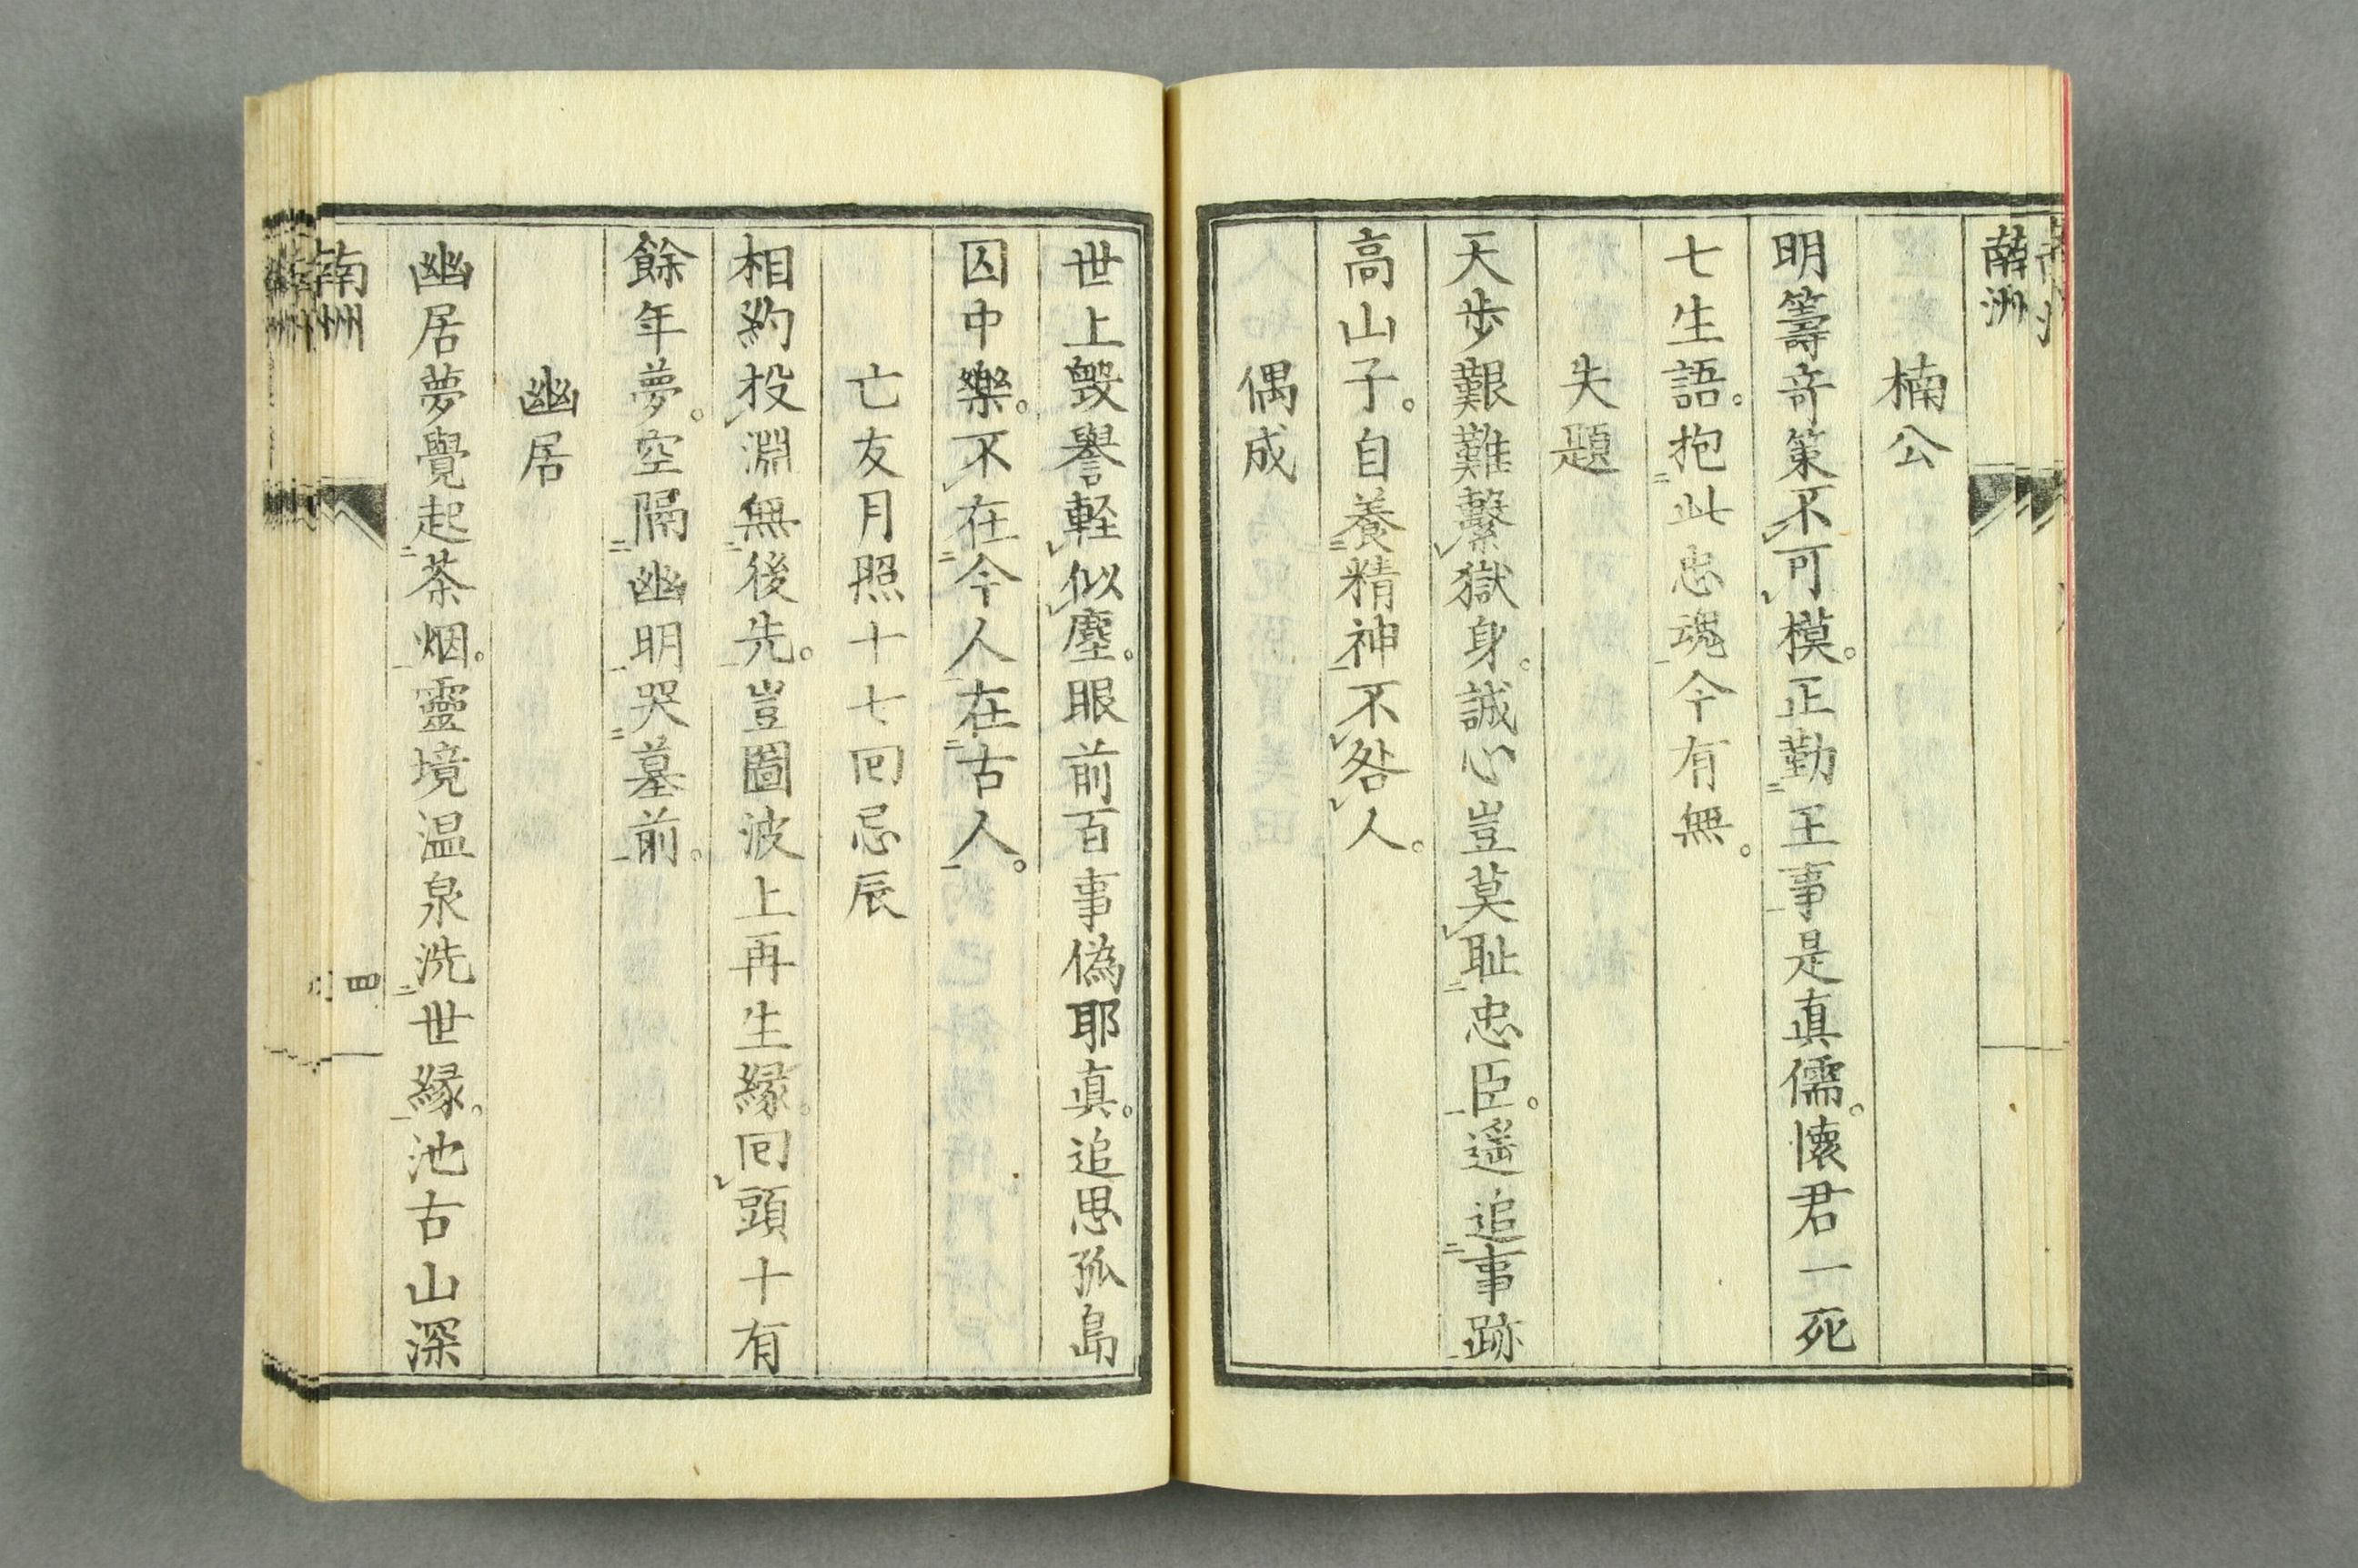 南洲
楠公
明籌奇策不可模。正勤王事是真儒。懷君一死
七生語。抱此忠魂今有無。
失題
天歩艱難繫獄身。誠心豈莫耻忠臣。遥追事跡
高山子。自養精神不咎人。
偶成
世上毀譽輕似塵。眼前百事偽耶真。追思孤島
囚中樂。不在今人在古人。
亡友月照十七回忌辰
相約投淵無後先。豈圖波上再生緣。回頭十有
餘年夢。空隔幽明哭墓前。
幽居
幽居夢覺起茶烟。靈境温泉洗世緣。池古山深
南洲
四